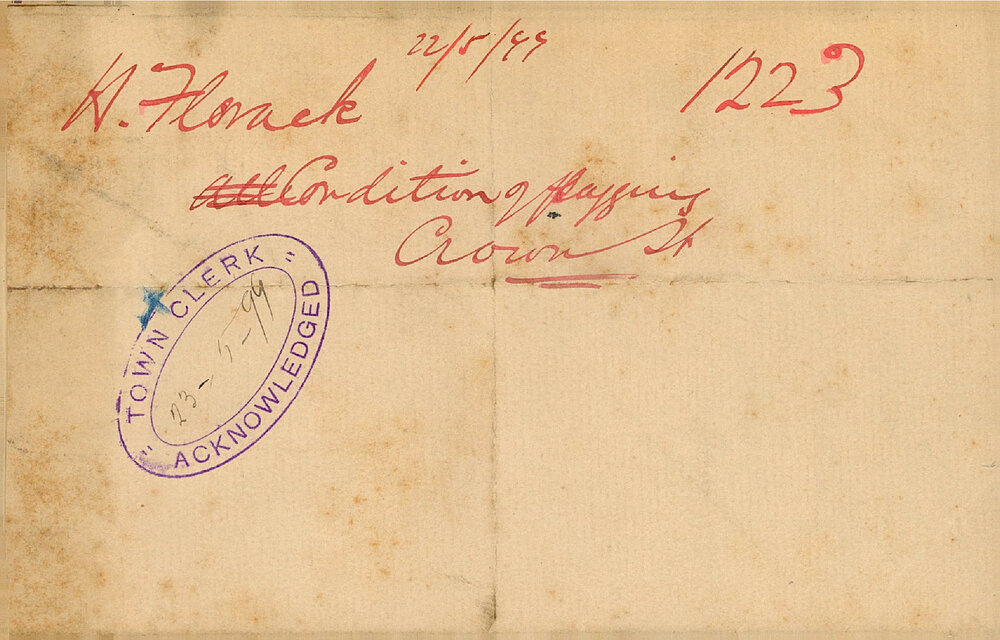 22/5/99
H. Florack
1223
Condition of flagging
Crown St
TOWN CLERK
23-5-99
ACKNOWLEDGED